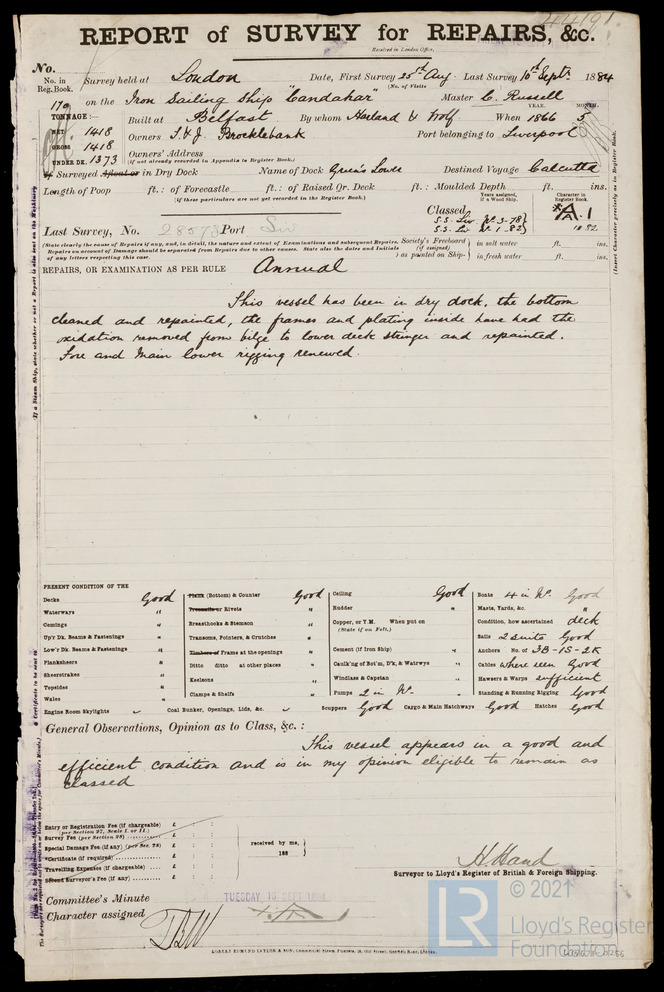 44191.
REPORT of SURVEY for REPAIRS, &c.
Received in London Office,
No.
No. in Reg. Book. Survey held at London Date, First Survey 25th Aug. Last Survey 10th Septr. 1884
(No. of Visits
170 on the Iron Sailing Ship "Candahar" Master C. Russell
YEAR. MONTH.
TONNAGE:— Built at Belfast By whom Harland & Wolf When 1866 5
NET 1418
GROSS 1418 Owners T. & J. Brocklebank Port belonging to Liverpool
UNDER DK. 1373 Owners' Address
(if not already recorded in Appendix to Register Book.)
If Surveyed Afloat or in Dry Dock Name of Dock Green's Lower Destined Voyage Calcutta
Length of Poop ft.: of Forecastle ft.: of Raised Qr. Deck ft.: Moulded Depth ft. ins.
(if these particulars are not yet recorded in the Register Book.)
Years assigned, if a Wood Ship. Character in Register Book.
Classed A.1
S.S. Liv No. 3-78
Last Survey, No. 28573 Port Liv S.S. Liv No. 1.82 10.82
(State clearly the cause of Repairs if any, and, in detail, the nature and extent of Examinations and subsequent Repairs.
Repairs on account of Damage should be separated from Repairs due to other causes. State also the dates and Initials of any letters respecting this case. )
Society's Freeboard (if assigned) as painted on Ship- in salt water ft. ins.
in fresh water ft. ins.
REPAIRS, OR EXAMINATION AS PER RULE Annual
This vessel has been in dry dock, the bottom
cleaned and repainted, the frames and plating inside have had the
oxidation removed from bilge to lower deck stringer and repainted.
Fore and Main lower rigging renewed.
PRESENT CONDITION OF THE
Decks Good
Waterways "
Comings "
Up'r Dk. Beams & Fastenings "
Low'r Dk. Beams & Fastenings "
Planksheers "
Sheerstrakes "
Topsides "
Wales "
Engine Room Skylights
Plank (Bottom) & Counter Good
Treenails or Rivets "
Breasthooks & Stemson "
Transoms, Pointers, & Crutches "
Timbers of Frame at the openings "
Ditto ditto at other places "
Keelsons "
Clamps & Shelfs "
Coal Bunker, Openings, Lids, &c.
Ceiling Good
Rudder "
Copper, or Y.M. When put on
(State if on Felt.)
Cement (if Iron Ship) "
Caulk'ng of Bot'm, D'k, & Watrwys "
Windlass & Capstan "
Pumps 2 in No. "
Scuppers Good Cargo & Main Hatchways Good Hatches Good
Boats 4 in No. Good
Masts, Yards, &c. "
Condition, how ascertained deck
Sails 2 suits Good
Anchors No. of 3B-1S-2K
Cables where seen Good
Hawsers & Warps sufficient
Standing & Running Rigging Good
General Observations, Opinion as to Class, &c.:
This vessel appears in a good and
efficient condition and is in my opinion eligible to remain as
classed
Entry or Registration Fee (if chargeable) £ : :
(per Section 27, Scale I. or II.)
Survey Fee (per Section 28) £ : :
Special Damage Fee (if any) (per Sec. 28) £ : :
*Certificate (if required) £ : :
Travelling Expenses (if chargeable) £ : :
Second Surveyor's Fee (if any) £ : :
received by me,
188
H. Hand
Surveyor to Lloyd's Register of British & Foreign Shipping.
Committee's Minute TUESDAY, 16 SEPT 1884
Character assigned
© 2021
LR
Lloyd's Register
Foundation